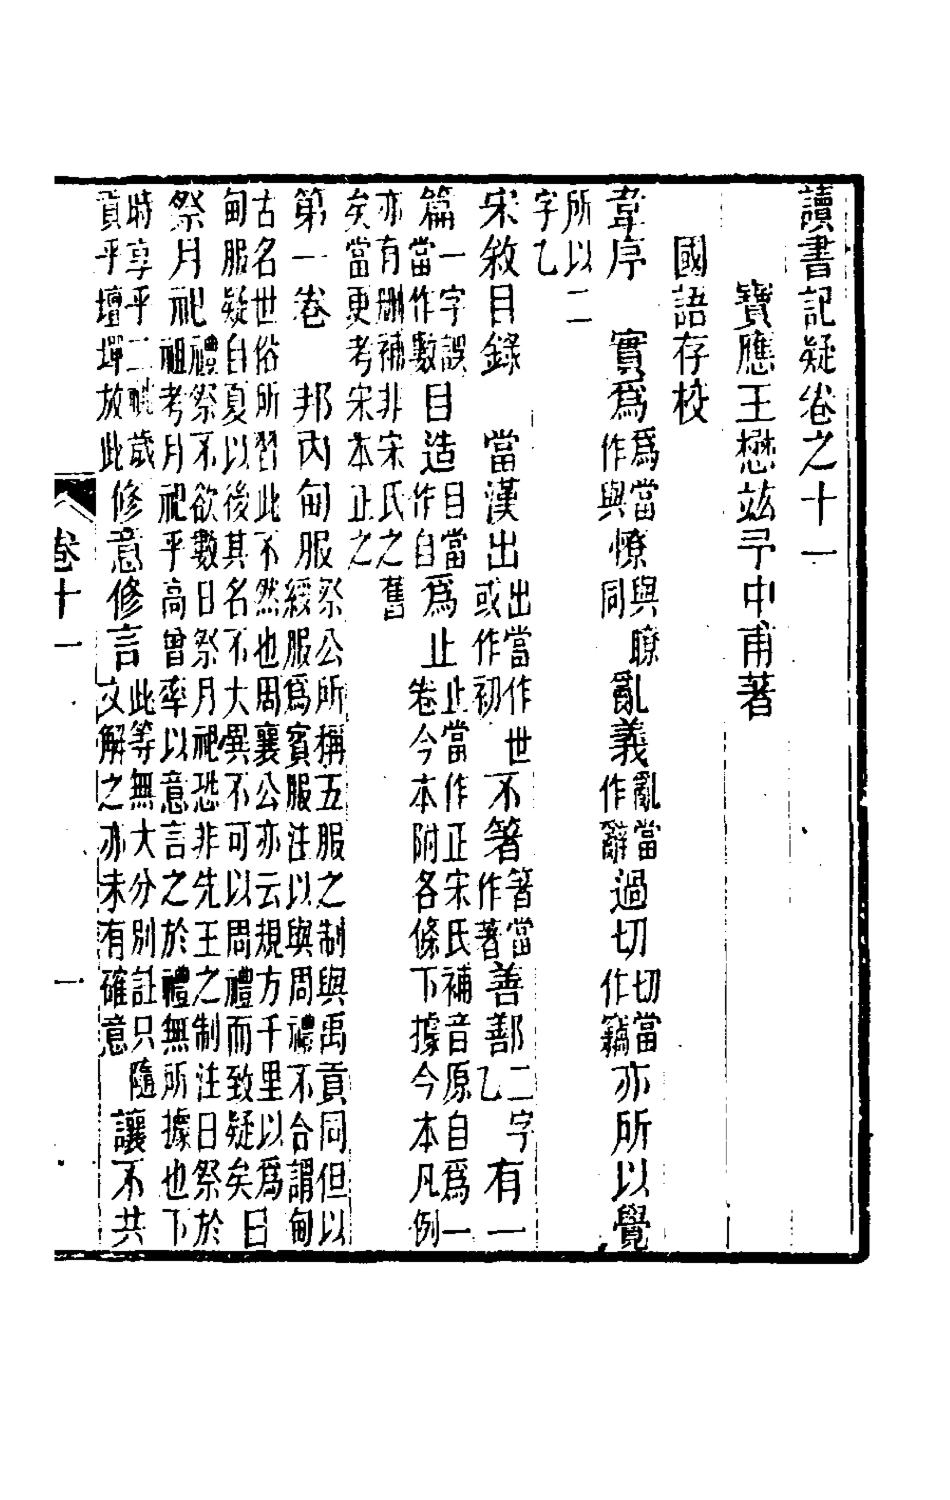 讀書記疑卷之十一
寶應王懋竑予中甫著
國語存校
韋序　實爲爲當作與憭與瞭同亂義亂當作辭過切切當作竊亦所以覺
所以二字乙
宋敘目錄　當漢出出當作世或作初不箸箸當作著善善鄙二字乙有一
篇一字誤當作數目造目當作自爲止止當作正宋氏補音原自爲一卷今本附各條下據今本凡例
亦有刪補非宋氏之舊矣當更考宋本正之
第一卷　邦內甸服祭公所稱五服之制與禹貢同但以綏服爲賓服注以與周禮不合謂甸
古名世俗所習此不然也周襄公亦云規方千里以爲甸服疑自夏以後其名不大異不可以周禮而致疑矣日
祭月祀禮祭不欲數日祭月祀恐非先王之制注日祭於祖考月祀乎高曾率以意言之於禮無所據也下
時享乎二祧歲貢乎壇墠放此修意修言此等無大分別註只隨文解之亦未有確意讓不共
卷十一　一